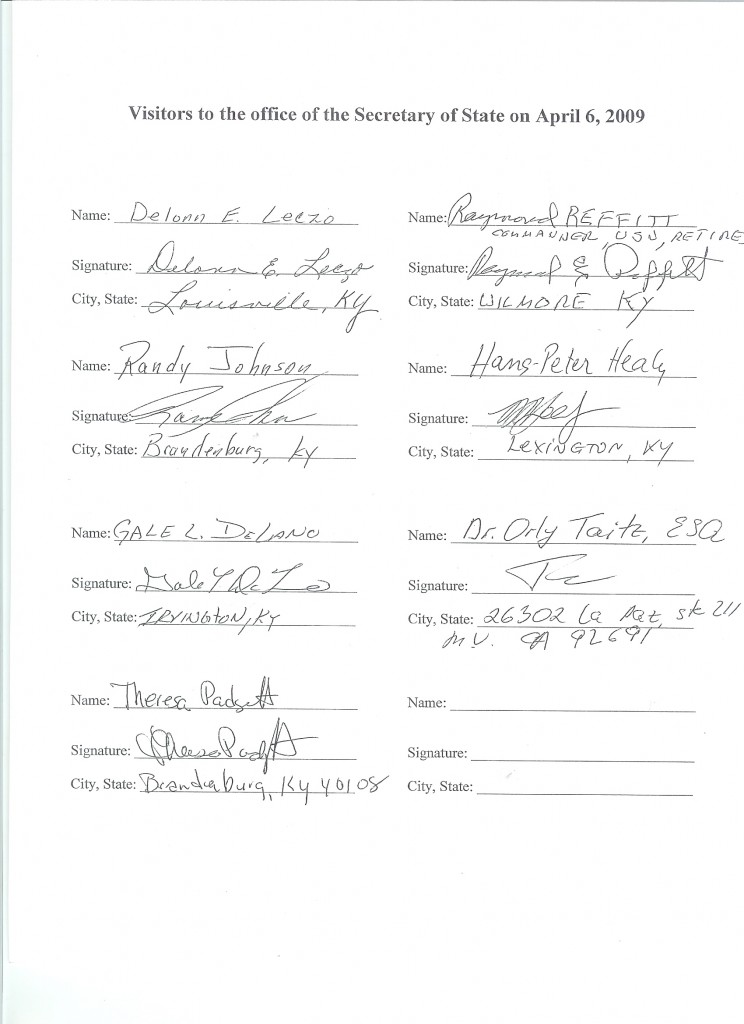 Visitors to the office of the Secretary of State on April 6, 2009
Name: Delonn E. Leczo
Signature: Delonn E. Leczo
City, State: Louisville, KY
Name: Raymond REFFITT
COMMANNER, USN, RETIRE
Signature: Raymond E Reffitt
City, State: WILMORE KY
Name: Randy Johnson
Signature:
City, State: Brandenburg, Ky
Name: Hans-Peter Healy
Signature:
City, State: LEXINGTON, KY
Name: GALE L. DELANO
Signature: Gale L De La
City, State: IRVINGTON, KY
Name: Dr. Orly Taitz, ESQ
Signature:
City, State: 26302 La Paz, ste 211
M.V. CA 92691
Name: Theresa Padgett
Signature: Theresa Padgett
City, State: Brandenburg, Ky 40108
Name:
Signature:
City, State: